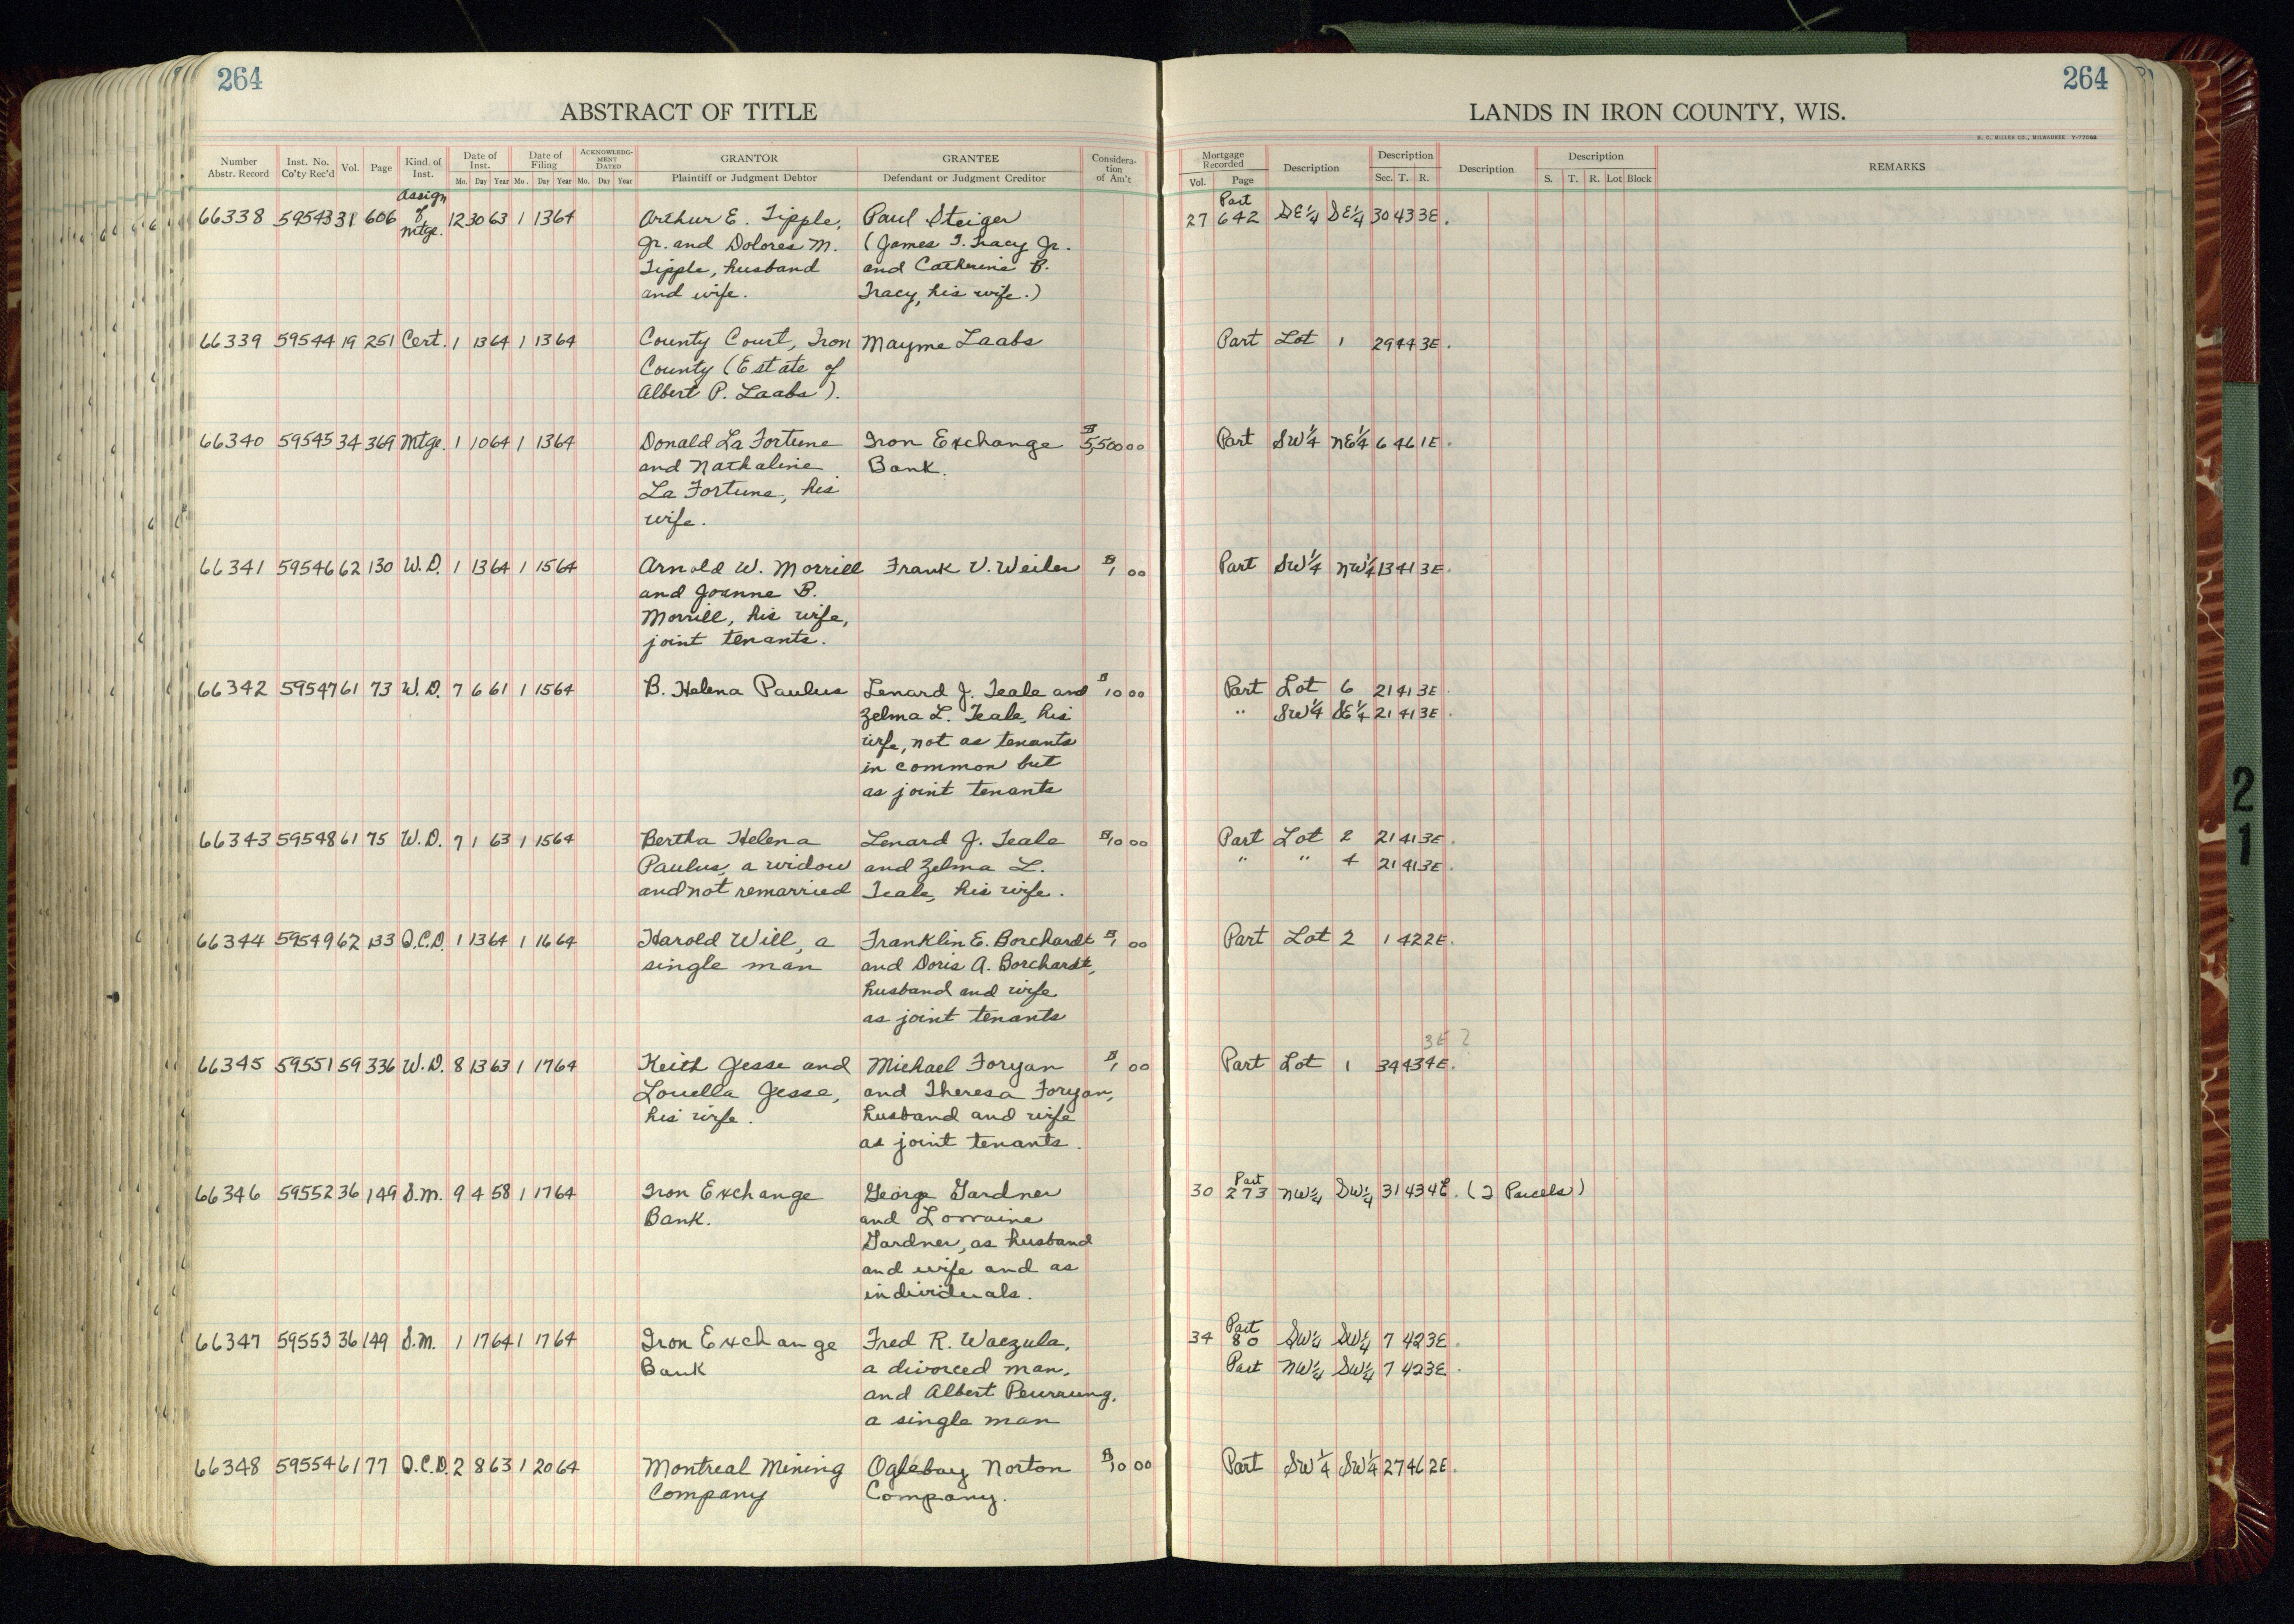 264
264
ABSTRACT OF TITLE
LANDS IN IRON COUNTY, WIS.
H. C. MILLER CO., MILWAUKEE
Number Abstr. Record Inst. No. Co'ty Rec'd Vol. Page Kind of Inst. Date of Inst. Mo. Day Year Date of Filing Mo. Day Year ACKNOWLEDGMENT DATED Mo. Day Year GRANTOR Plaintiff or Judgment Debtor GRANTEE Defendant or Judgment Creditor Consideration of Am't Mortgage Recorded Vol. Page Description Description Sec. T. R. Description Description S. T. R. Lot Block REMARKS
66338 59543 31 606 Assign of Mtge. 12 30 63 1 13 64 Arthur E. Tipple, Paul Steiger 27 Part 642 SE¼ SE¼ 30 43 3E.
Jr. and Dolores M. (James T. Tracy Jr.
Tipple, husband and Catherine B.
and wife. Tracy, his wife.)
66339 59544 19 251 Cert. 1 13 64 1 13 64 County Court, Iron Mayme Laabs Part Lot 1 29 44 3E.
County (Estate of
Albert P. Laabs).
66340 59545 34 369 Mtge. 1 10 64 1 13 64 Donald La Fortune Iron Exchange $5,500 00 Part SW¼ NE¼ 6 46 1E.
and Nathaline Bank.
La Fortune, his
wife.
66341 59546 62 130 W.D. 1 13 64 1 15 64 Arnold W. Morrill Frank V. Weiler $1 00 Part SW¼ NW¼ 13 41 3E.
and Joanne B.
Morrill, his wife,
joint tenants.
66342 59547 61 73 W.D. 7 6 61 1 15 64 B. Helena Paulus Lenard J. Teale and $10 00 Part Lot 6 21 41 3E.
Zelma L. Teale, his " SW¼ SE¼ 21 41 3E.
wife, not as tenants
in common but
as joint tenants
66343 59548 61 75 W.D. 7 1 63 1 15 64 Bertha Helena Lenard J. Teale $10 00 Part Lot 2 21 41 3E.
Paulus, a widow and Zelma L. " " 4 21 41 3E.
and not remarried Teale, his wife.
66344 59549 62 133 Q.C.D. 1 13 64 1 16 64 Harold Will, a Franklin E. Borchardt $1 00 Part Lot 2 1 42 2E.
single man and Doris A. Borchardt,
husband and wife
as joint tenants
3E ?
66345 59551 59 336 W.D. 8 13 63 1 17 64 Keith Jesse and Michael Foryan $1 00 Part Lot 1 34 43 4E.
Louella Jesse, and Theresa Foryan,
his wife. husband and wife
as joint tenants.
66346 59552 36 149 S.M. 9 4 58 1 17 64 Iron Exchange George Gardner 30 Part 273 NW¼ SW¼ 31 43 4E. (2 Parcels)
Bank. and Lorraine
Gardner, as husband
and wife and as
individuals.
66347 59553 36 149 S.M. 1 17 64 1 17 64 Iron Exchange Fred R. Waczula, 34 Part 80 SW¼ SW¼ 7 42 3E.
Bank a divorced man, Part NW¼ SW¼ 7 42 3E.
and Albert Peurrung,
a single man
66348 59554 61 77 Q.C.D. 2 8 63 1 20 64 Montreal Mining Oglebay Norton $10 00 Part SW¼ SW¼ 27 46 2E.
Company Company.
21